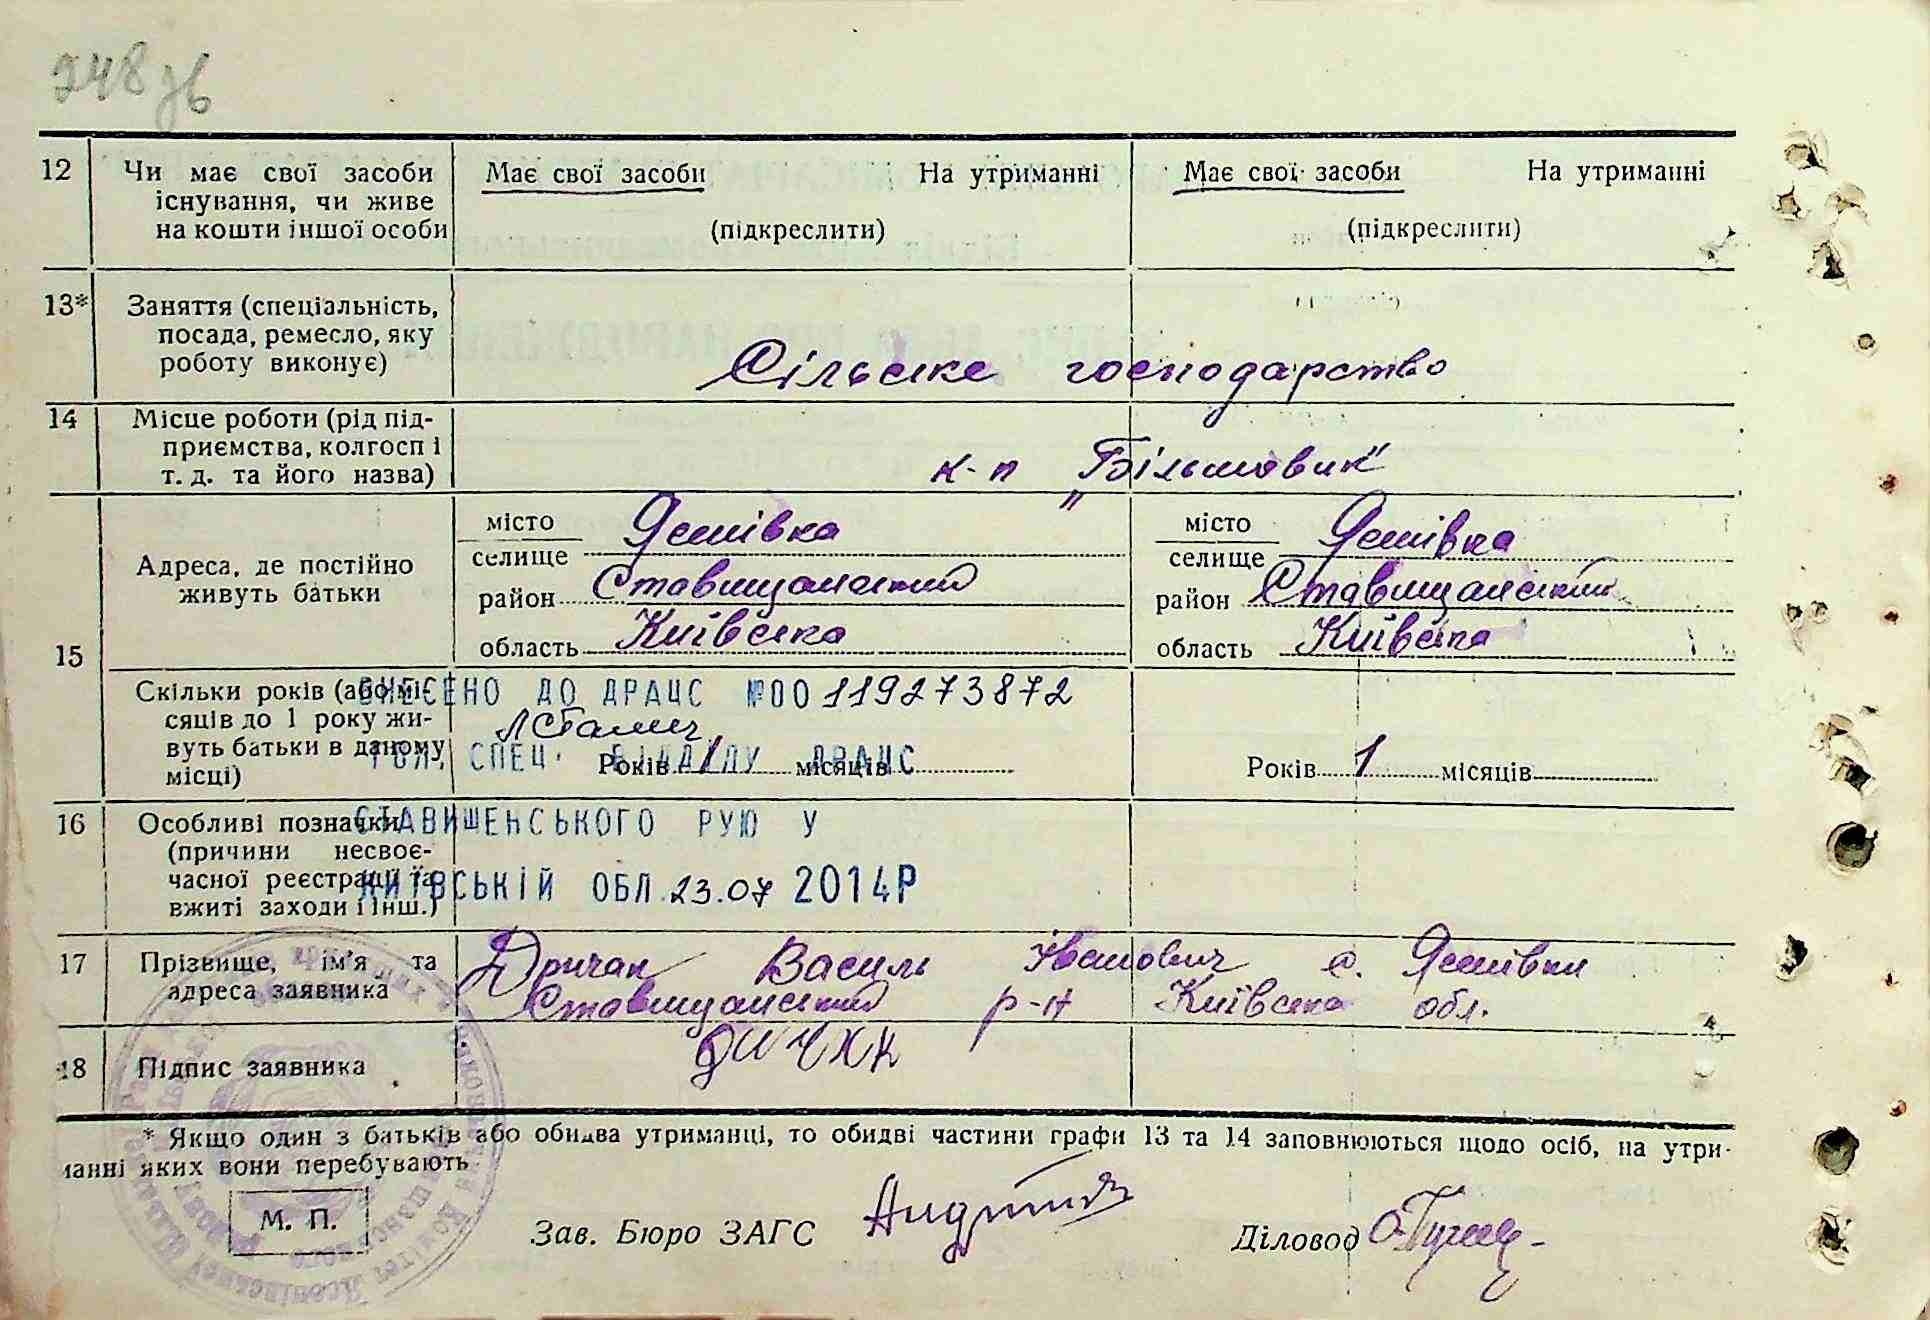 248 зв
12 Чи має свої засоби існування, чи живе на кошти іншої особи
Має свої засоби На утриманні
(підкреслити)
Має свої засоби На утриманні
(підкреслити)
13* Заняття (спеціальність, посада, ремесло, яку роботу виконує)
Сільське господарство
14 Місце роботи (рід підприємства, колгосп і т. д. та його назва)
к-п „Більшовик"
15 Адреса, де постійно живуть батьки
місто
селище Яснівка
район Ставищанський
область Київська
місто
селище Яснівка
район Ставищанський
область Київська
Скільки років (або місяців до 1 року живуть батьки в даному місці)
Років 1 місяців
Років 1 місяців
ВНЕСЕНО ДО ДРАЦС №00119273872
ГОЛ. СПЕЦ. ВІДДІЛУ ДРАЦС
СТАВИЩЕНСЬКОГО РУЮ У
КИЇВСЬКІЙ ОБЛ. 23.07 2014Р
16 Особливі позначки (причини несвоєчасної реєстрації та вжиті заходи і інш.)
17 Прізвище, ім'я та адреса заявника
Дричак Василь Іванович с. Яснівки
Ставищанський р-н Київська обл.
18 Підпис заявника
* Якщо один з батьків або обидва утриманці, то обидві частини графи 13 та 14 заповнюються щодо осіб, на утри-
манні яких вони перебувають
М. П.
Зав. Бюро ЗАГС
Діловод